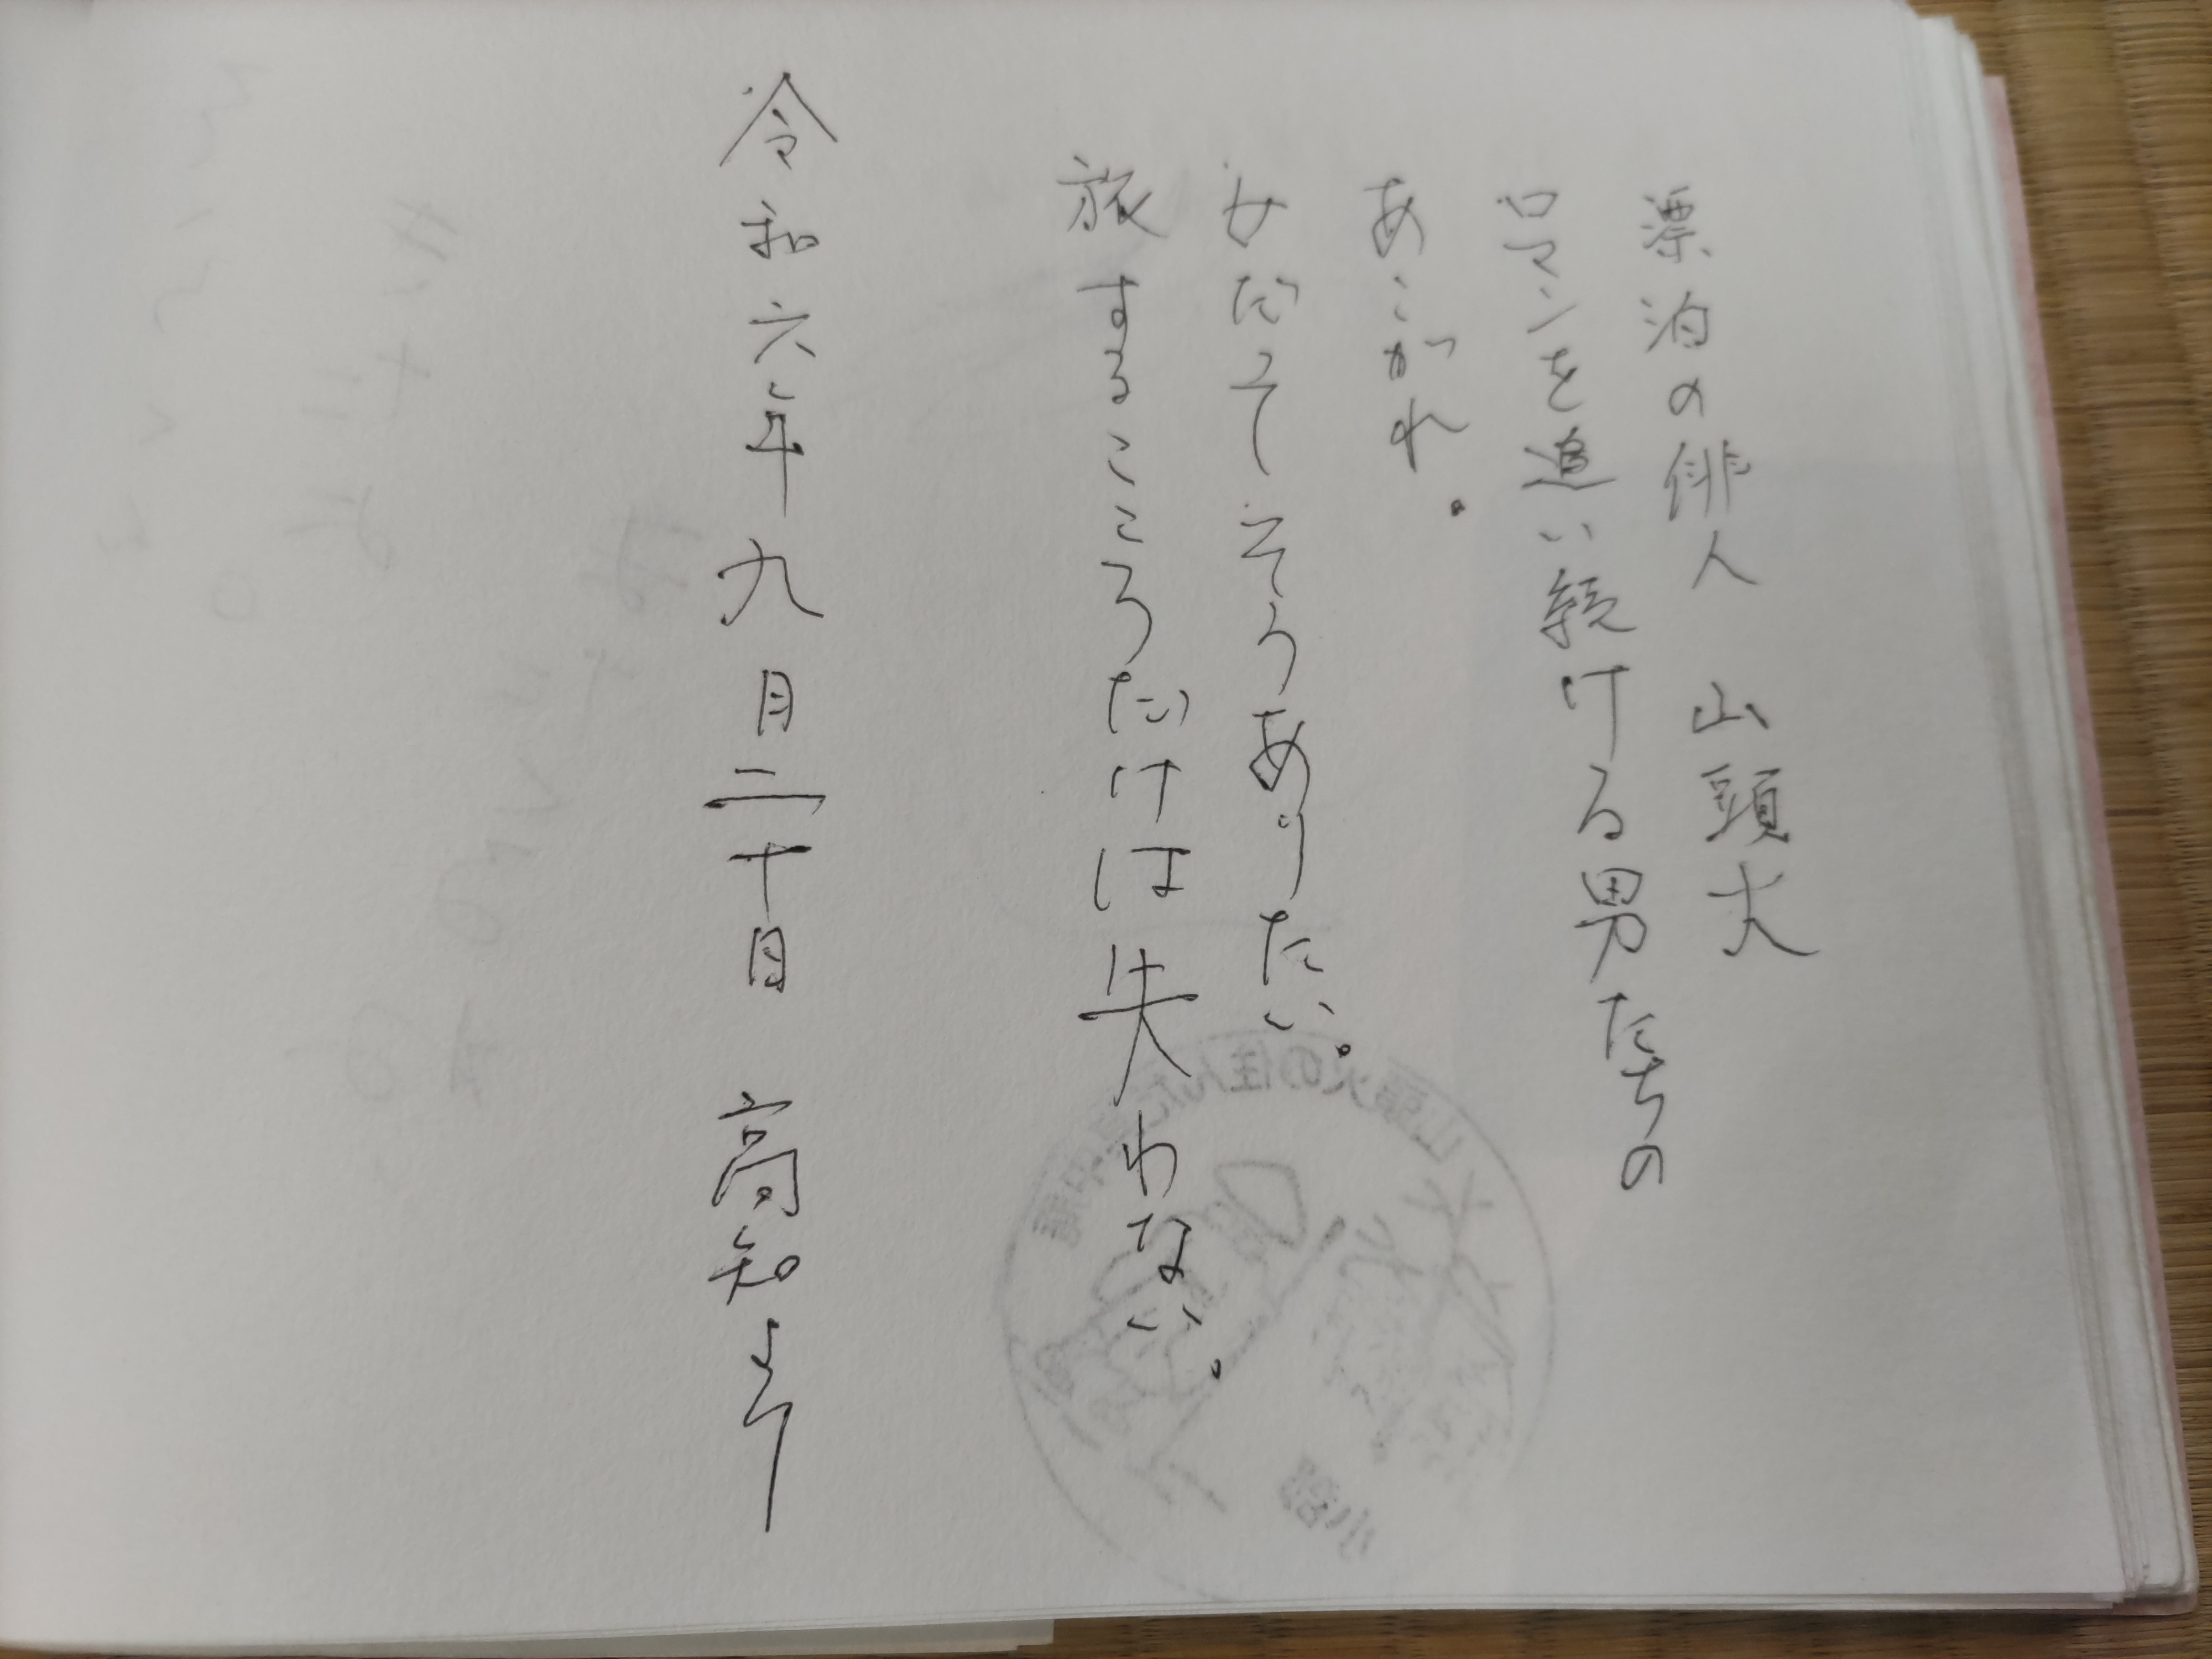 漂泊の俳人　山頭火
ロマンを追い続ける男たちの
あこがれ。
女だってそうありたい。
旅するこころだけは失わない。
令和六年九月二十日　高知より
山頭火の住んだ其中庵
小郡